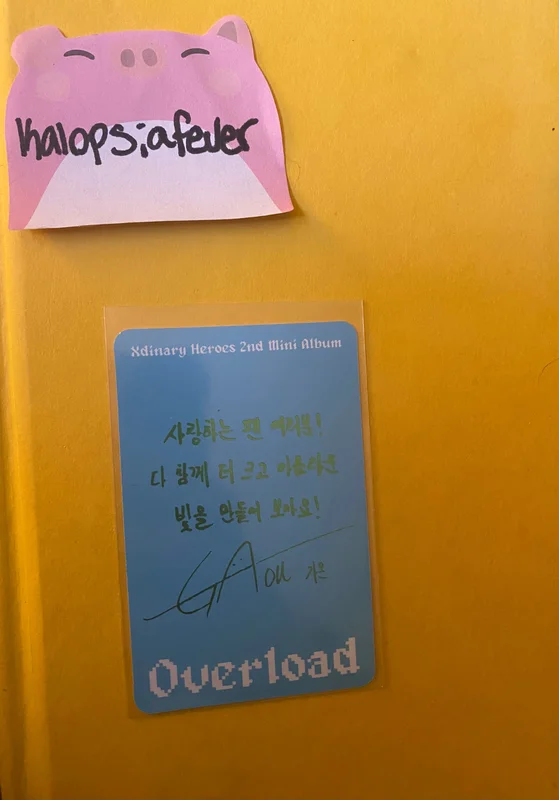 kalopsiafever
Xdinary Heroes 2nd Mini Album
사랑하는 팬 여러분!
다 함께 더 크고 아름다운
빛을 만들어 보아요!
GAon 가온
Overload